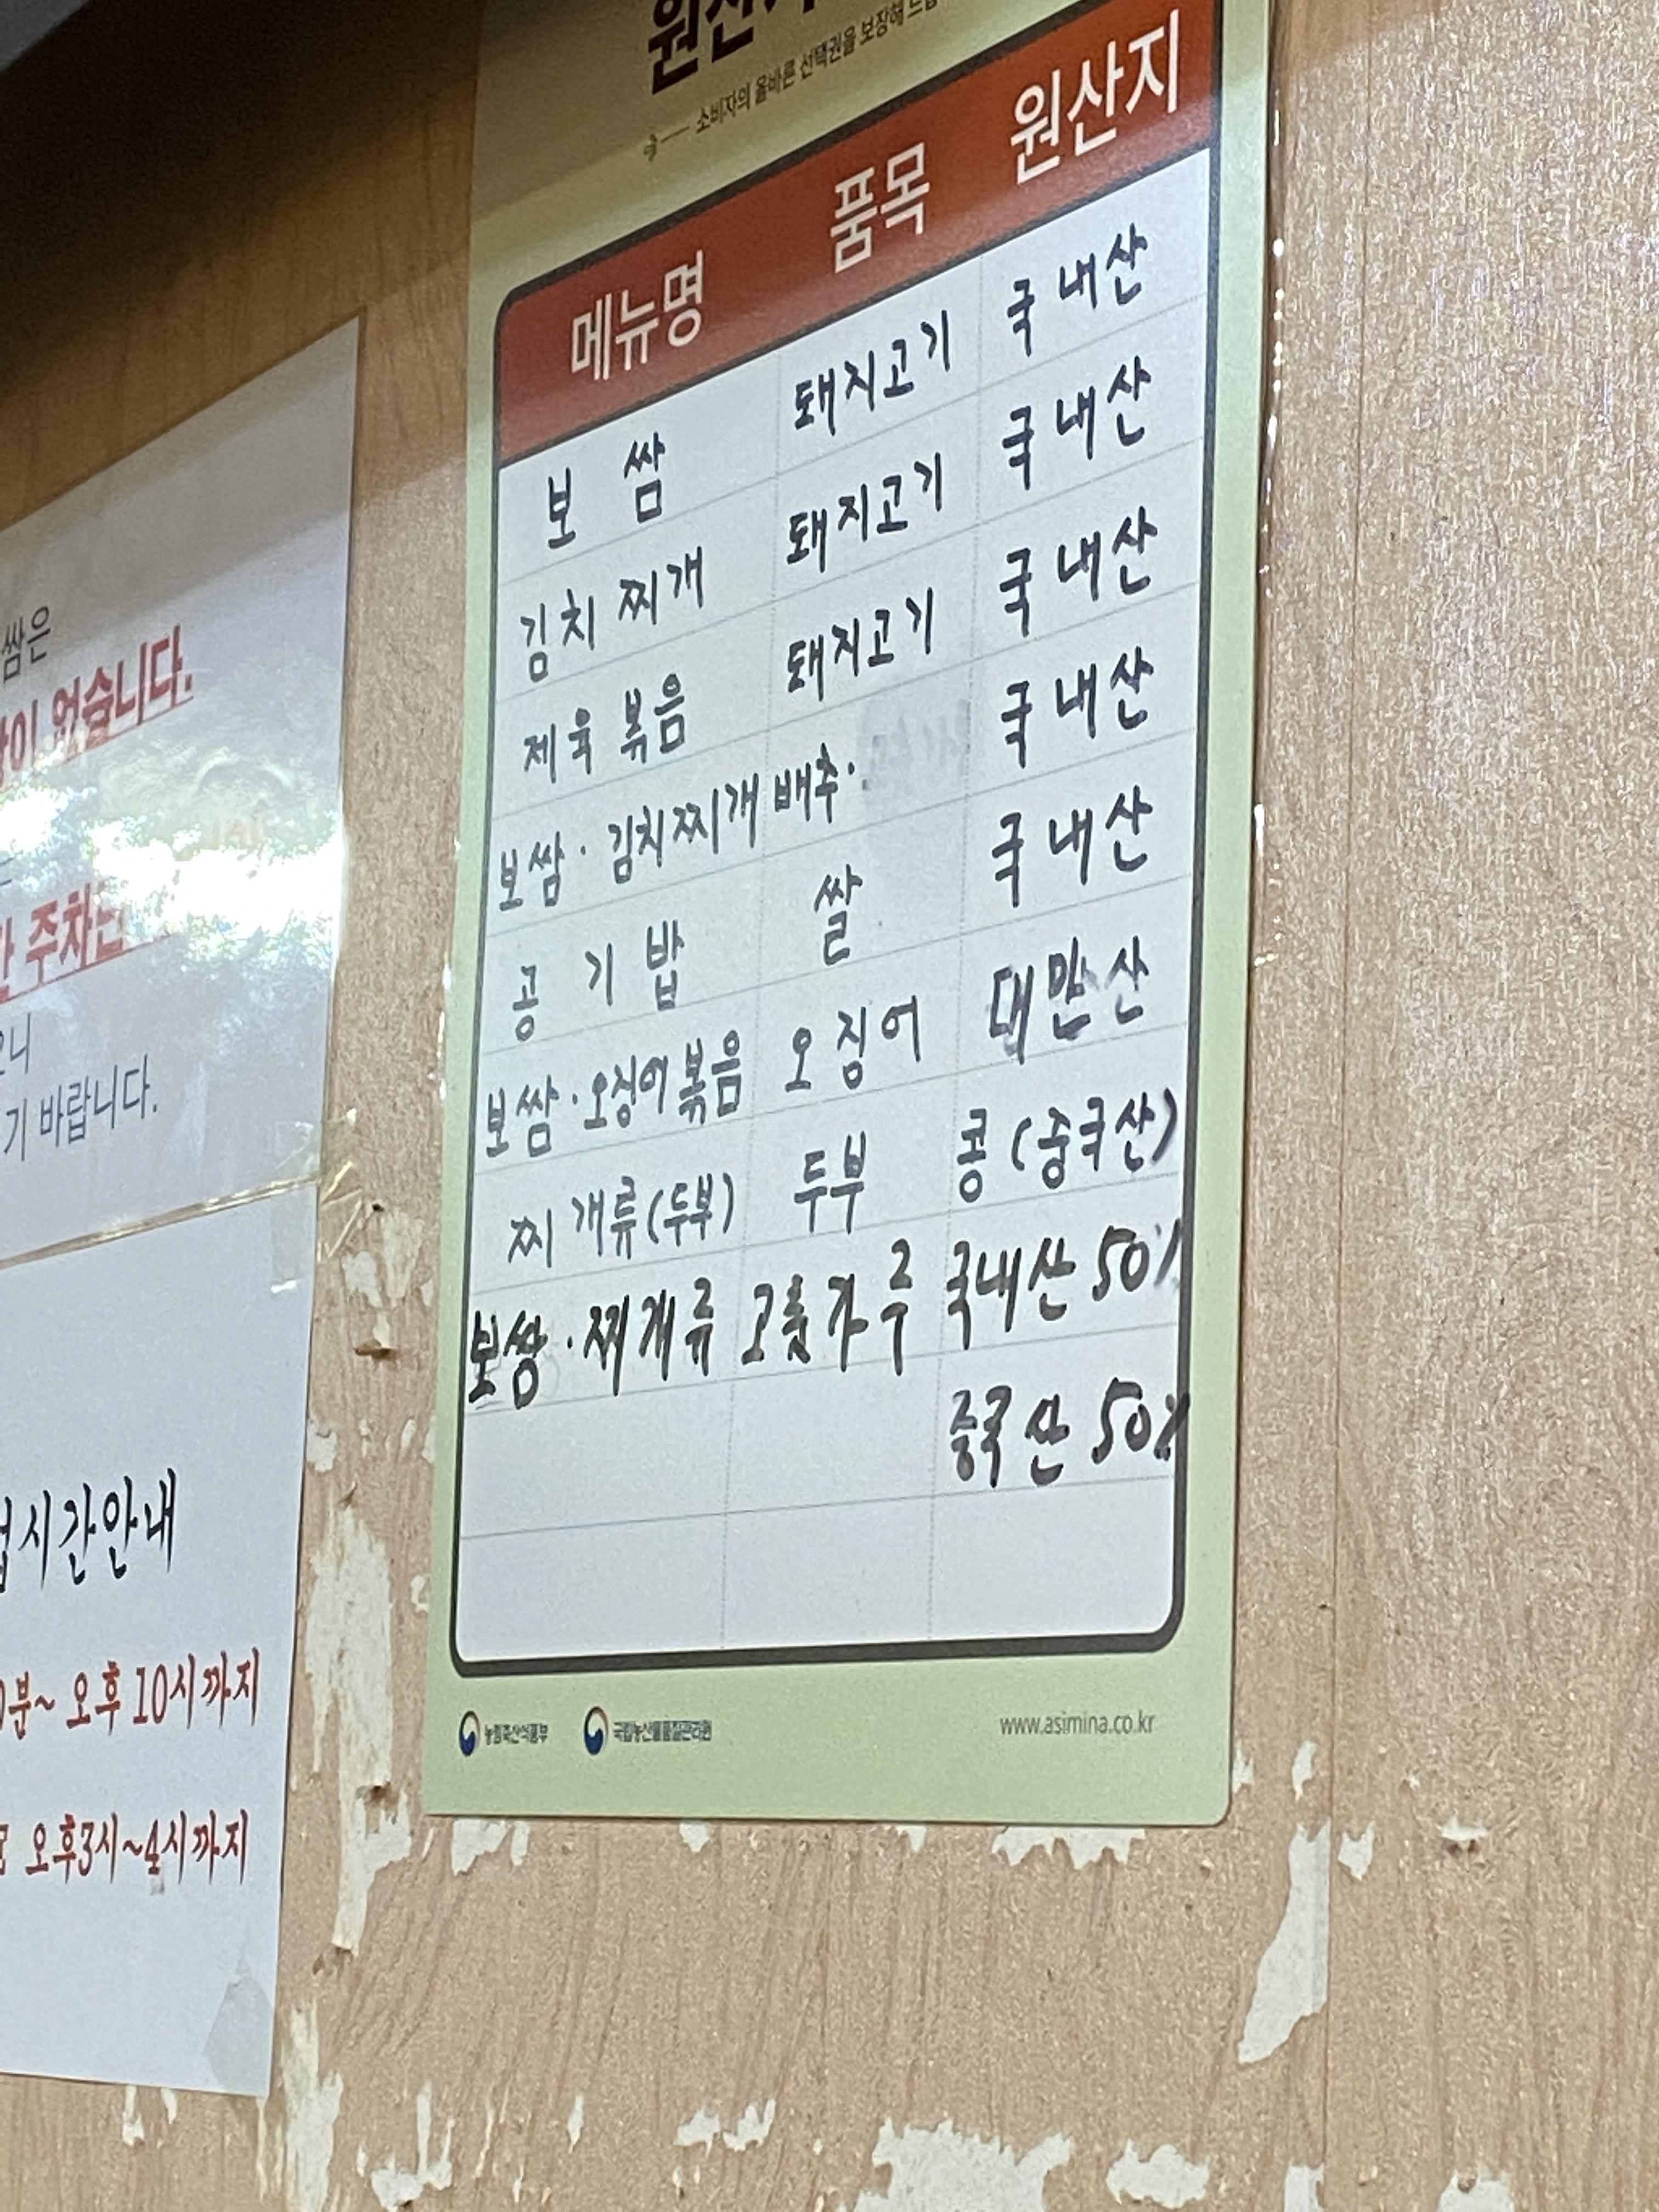 쌈은
없습니다.
주차는
오니
기 바랍니다.
시간안내
분~ 오후 10시까지
오후3시~4시까지
원산지
소비자의 올바른 선택권을 보장해 드립
메뉴명 품목 원산지
보 쌈 돼지고기 국내산
김치찌개 돼지고기 국내산
제육볶음 돼지고기 국내산
보쌈·김치찌개 배추· 국내산
공기밥 쌀 국내산
보쌈·오징어볶음 오징어 대만산
찌개류(두부) 두부 콩(중국산)
보쌈·찌개류 고춧가루 국내산 50%
중국산 50%
농림축산식품부 국립농산물품질관리원 www.asimina.co.kr